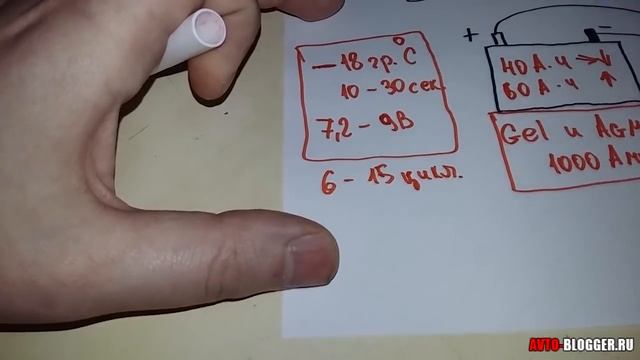 −18 гр. °C
10 – 30 сек
7,2 – 9В
6 – 15 цикл.
+ −
40 А.ч → ↓
60 А.ч ↑
Gel и AGM
1000 А
AVTO-BLOGGER.RU